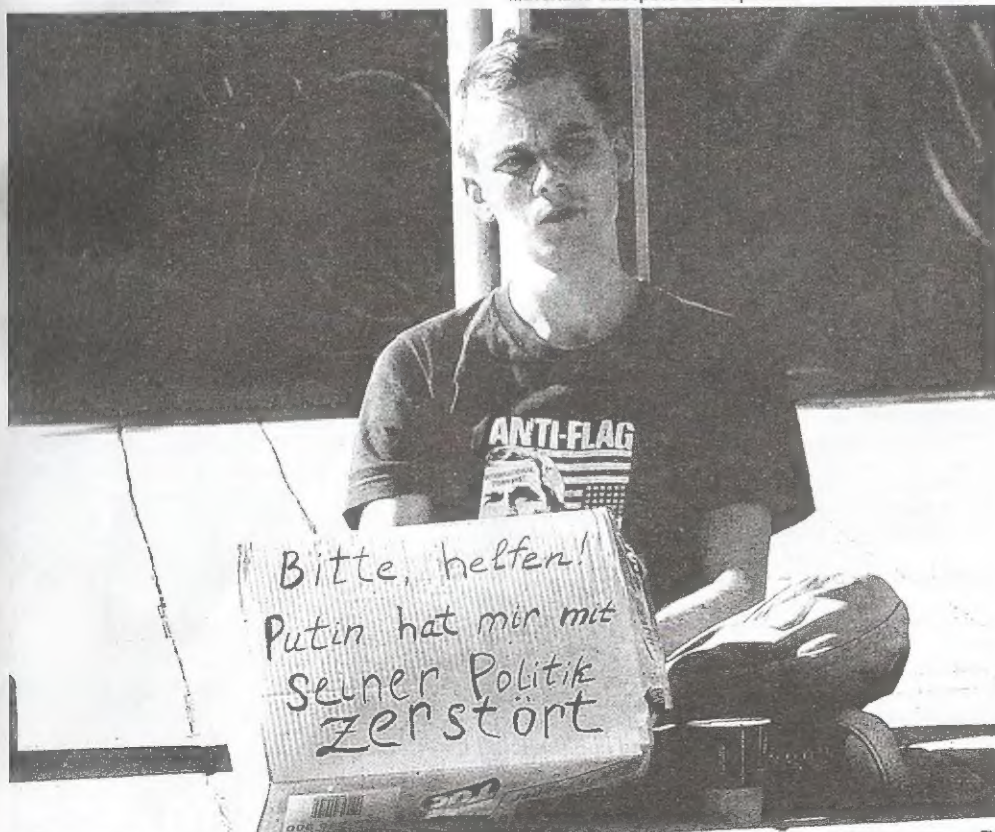 ANTI-FLAG
Bitte, helfen!
Putin hat mir mit
seiner Politik
zerstört
TUC